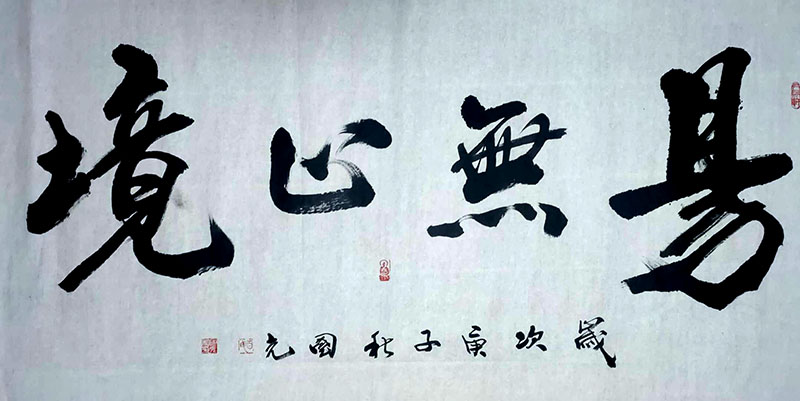 易無止境
歲次庚子秋國光